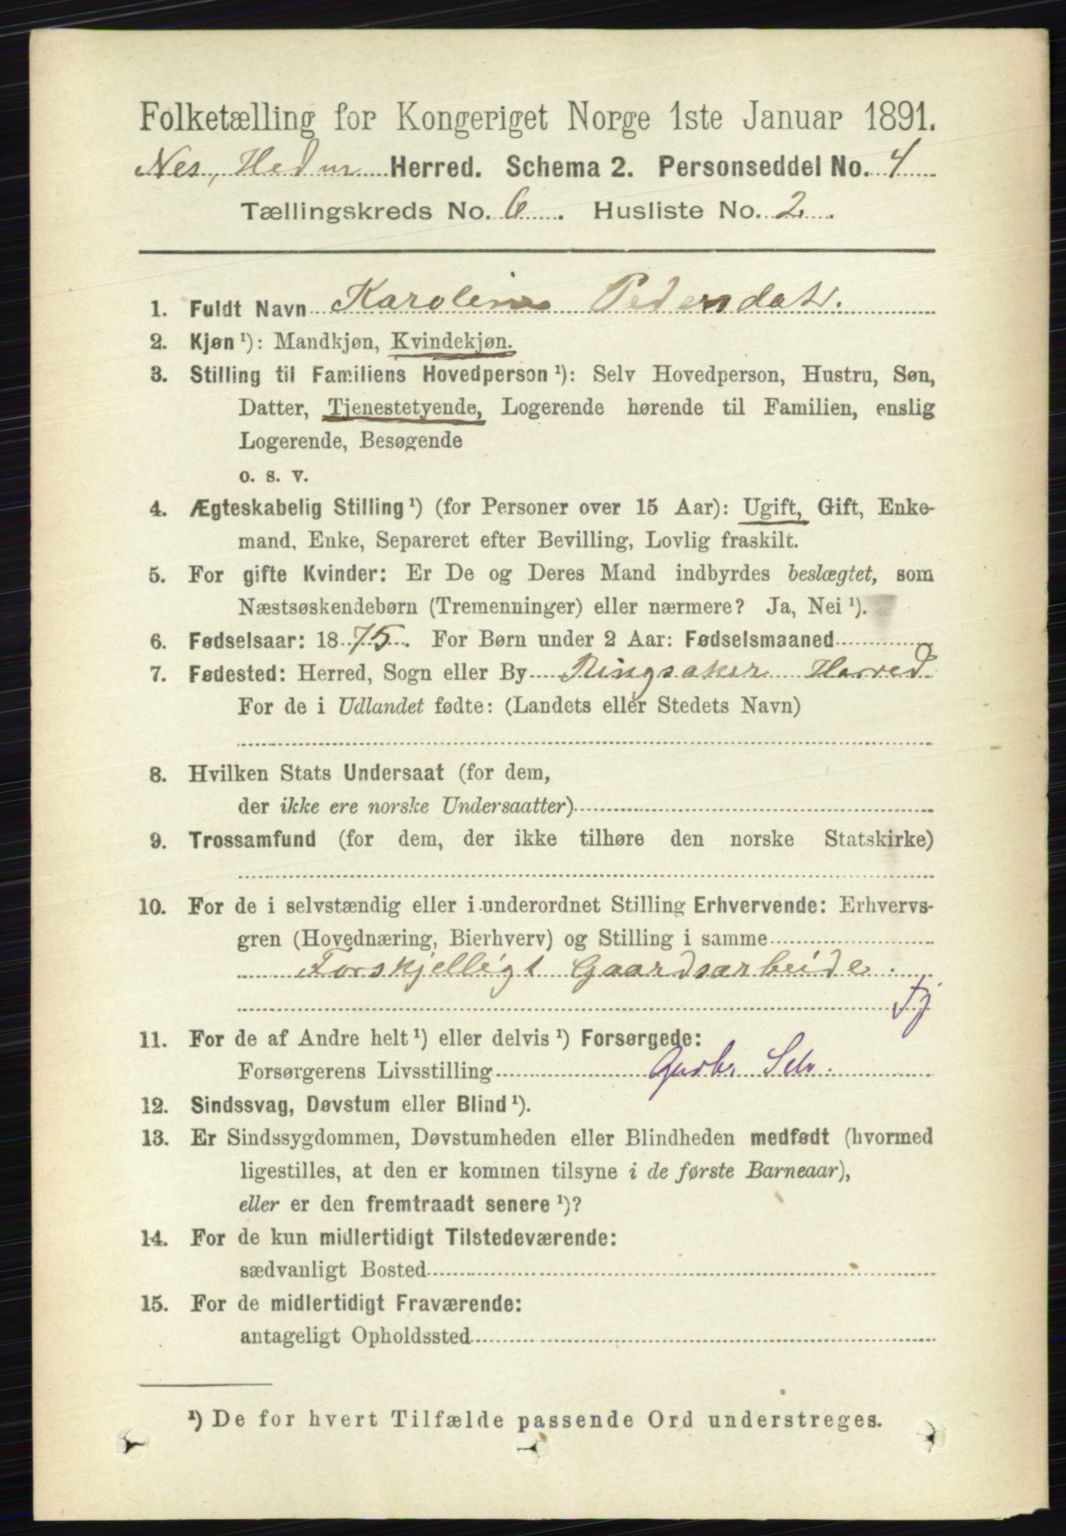 Folketælling for Kongeriget Norge 1ste Januar 1891.
Nes, Hedm Herred. Schema 2. Personseddel No. 4
Tællingskreds No. 6. Husliste No. 2.
1. Fuldt Navn Karoline Pedersdat.
2. Kjøn ¹): Mandkjøn, Kvindekjøn.
3. Stilling til Familiens Hovedperson ¹): Selv Hovedperson, Hustru, Søn,
Datter, Tjenestetyende, Logerende hørende til Familien, enslig
Logerende, Besøgende
o. s. v.
4. Ægteskabelig Stilling ¹) (for Personer over 15 Aar): Ugift, Gift, Enke-
mand, Enke, Separeret efter Bevilling, Lovlig fraskilt.
5. For gifte Kvinder: Er De og Deres Mand indbyrdes beslægtet, som
Næstsøskendebørn (Tremenninger) eller nærmere? Ja, Nei ¹).
6. Fødselsaar: 1875. For Børn under 2 Aar: Fødselsmaaned
7. Fødested: Herred, Sogn eller By Ringsaker Herred
For de i Udlandet fødte: (Landets eller Stedets Navn)
8. Hvilken Stats Undersaat (for dem,
der ikke ere norske Undersaatter)
9. Trossamfund (for dem, der ikke tilhøre den norske Statskirke)
10. For de i selvstændig eller i underordnet Stilling Erhvervende: Erhvervs-
gren (Hovednæring, Bierhverv) og Stilling i samme
Forskjelligt Gaardsarbeide.
Tj
11. For de af Andre helt ¹) eller delvis ¹) Forsørgede:
Forsørgerens Livsstilling Garbr. Selv.
12. Sindssvag, Døvstum eller Blind ¹).
13. Er Sindssygdommen, Døvstumheden eller Blindheden medfødt (hvormed
ligestilles, at den er kommen tilsyne i de første Barneaar),
eller er den fremtraadt senere ¹)?
14. For de kun midlertidigt Tilstedeværende:
sædvanligt Bosted
15. For de midlertidigt Fraværende:
antageligt Opholdssted
¹) De for hvert Tilfælde passende Ord understreges.